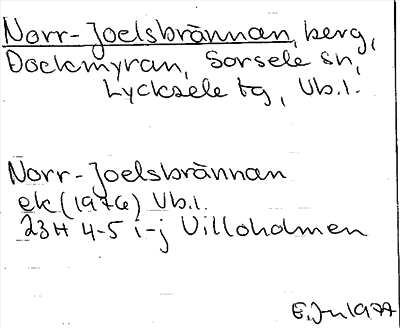 Norr-Joelsbrännan, berg,
Dockmyran, Sorsele sn,
Lycksele tg, Vb.l.
Norr-Joelsbrännan
ek (1976) Vb.l.
23H 4-5 i-j Villoholmen
E.Ju 1977